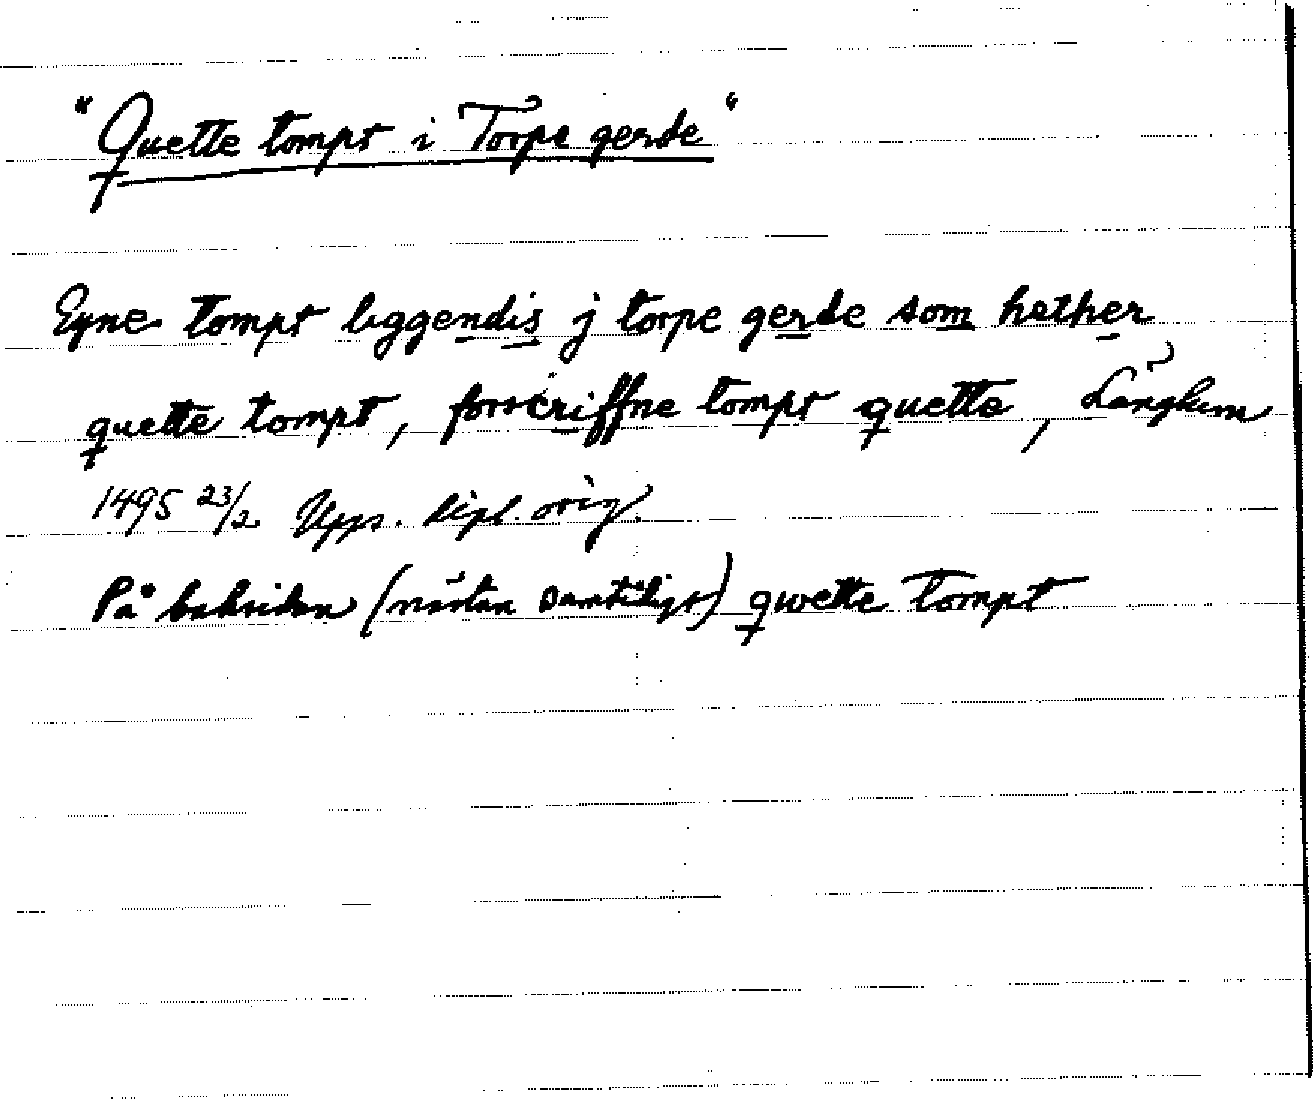 "Quette tompt i Torpe gerde"
Eyne tompt liggendis j torpe gerde som hether
quette tompt, forscriffne tompt quette, Långhem
1495 23/2 Upps. dipl. orig.
På baksidan (nästan samtidigt) qwette tompt